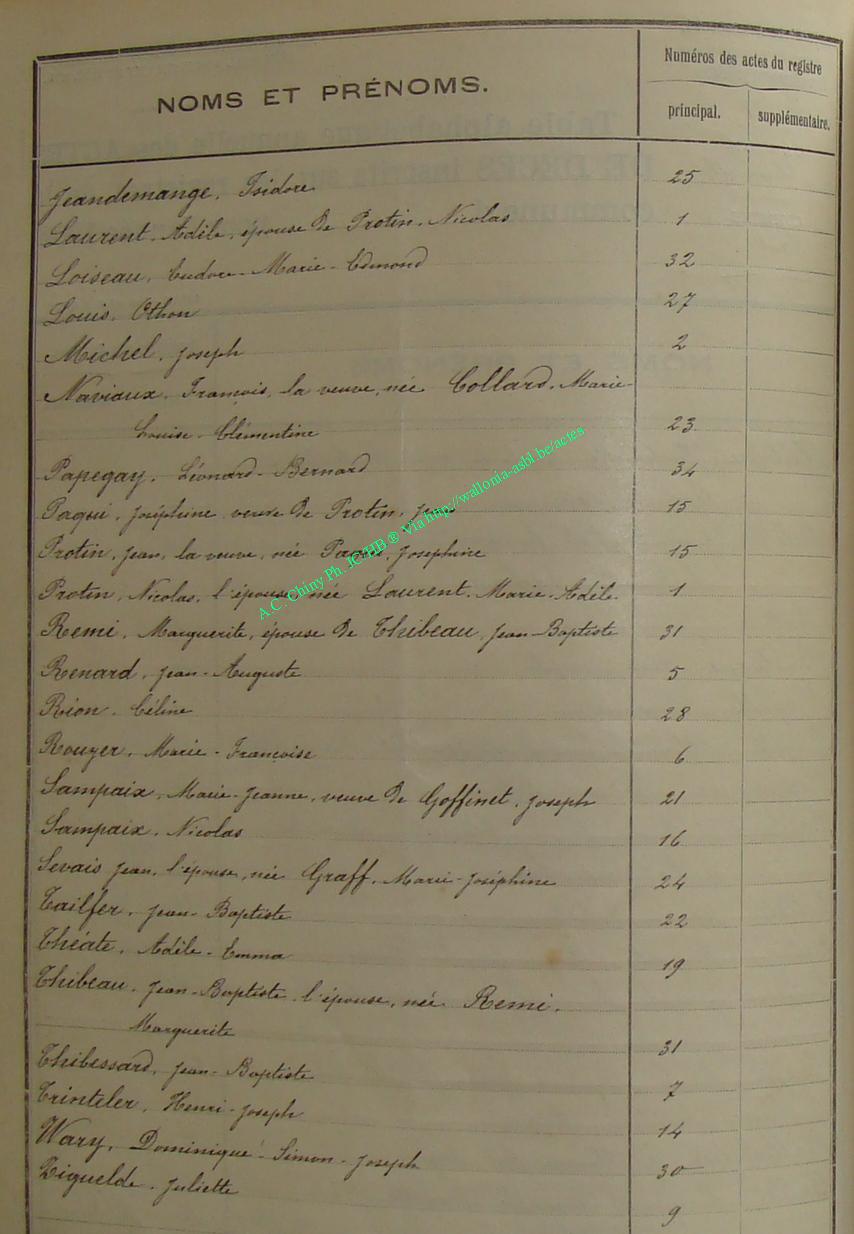 NOMS ET PRÉNOMS.
Numéros des actes du registre
principal.
supplémentaire.
Jeandemange. Isidore 25
Laurent. Adèle, épouse de Protin. Nicolas 1
Loiseau, Eudore-Marie-Edmond 32
Louis. Othon 27
Michel, Joseph 2
Naviaux. François, la veuve, née Collard, Marie-
Louise-Clémentine 23
Papegay. Léonard-Bernard 34
Paqui. Joséphine veuve de Protin, Jean 15
Protin, Jean, la veuve, née Paqui, Joséphine 15
Protin, Nicolas, l'épouse, née Laurent. Marie-Adèle. 1
Remi. Marguerite, épouse de Thibeau, Jean-Baptiste 31
Renard, Jean-Auguste 5
Rion. Céline 28
Rouyer. Marie-Françoise 6
Sampaix, Marie-Jeanne, veuve de Goffinet, Joseph 21
Sampaix. Nicolas 16
Sevais Jean, l'épouse, née Graff, Marie-Joséphine 24
Tailfer, Jean-Baptiste 22
Théate, Adèle-Emma 19
Thibeau, Jean-Baptiste, l'épouse, née Remi,
Marguerite 31
Thibessard, Jean-Baptiste 7
Trinteler, Henri-Joseph 14
Wary, Dominique-Simon-Joseph 30
Ziguelde, Juliette 9
A.C. Chiny Ph. JC/HB ® Via http://wallonia-asbl.be/actes